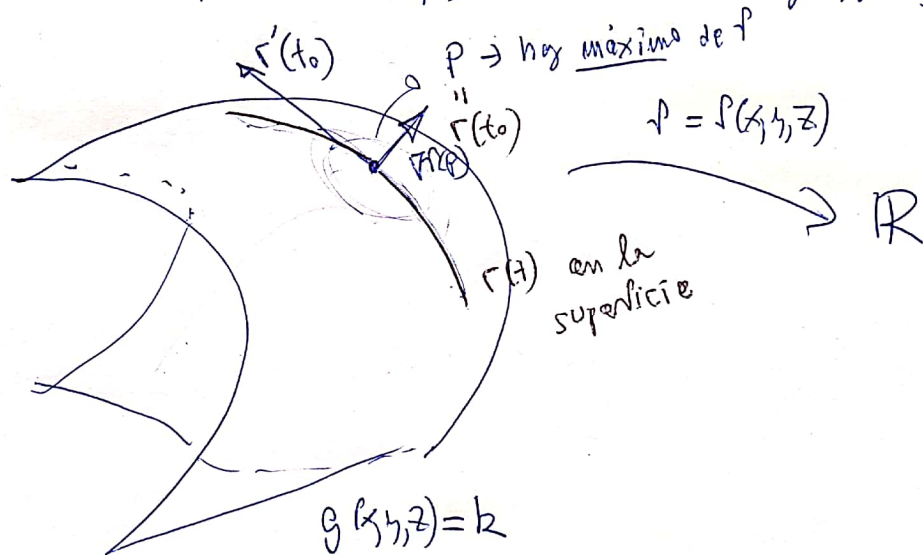 r'(t₀)
P → hay máximo de f
"
r(t₀)
∇f(P)
f = f(x,y,z)
ℝ
r(t) en la
superficie
g(x,y,z)=k